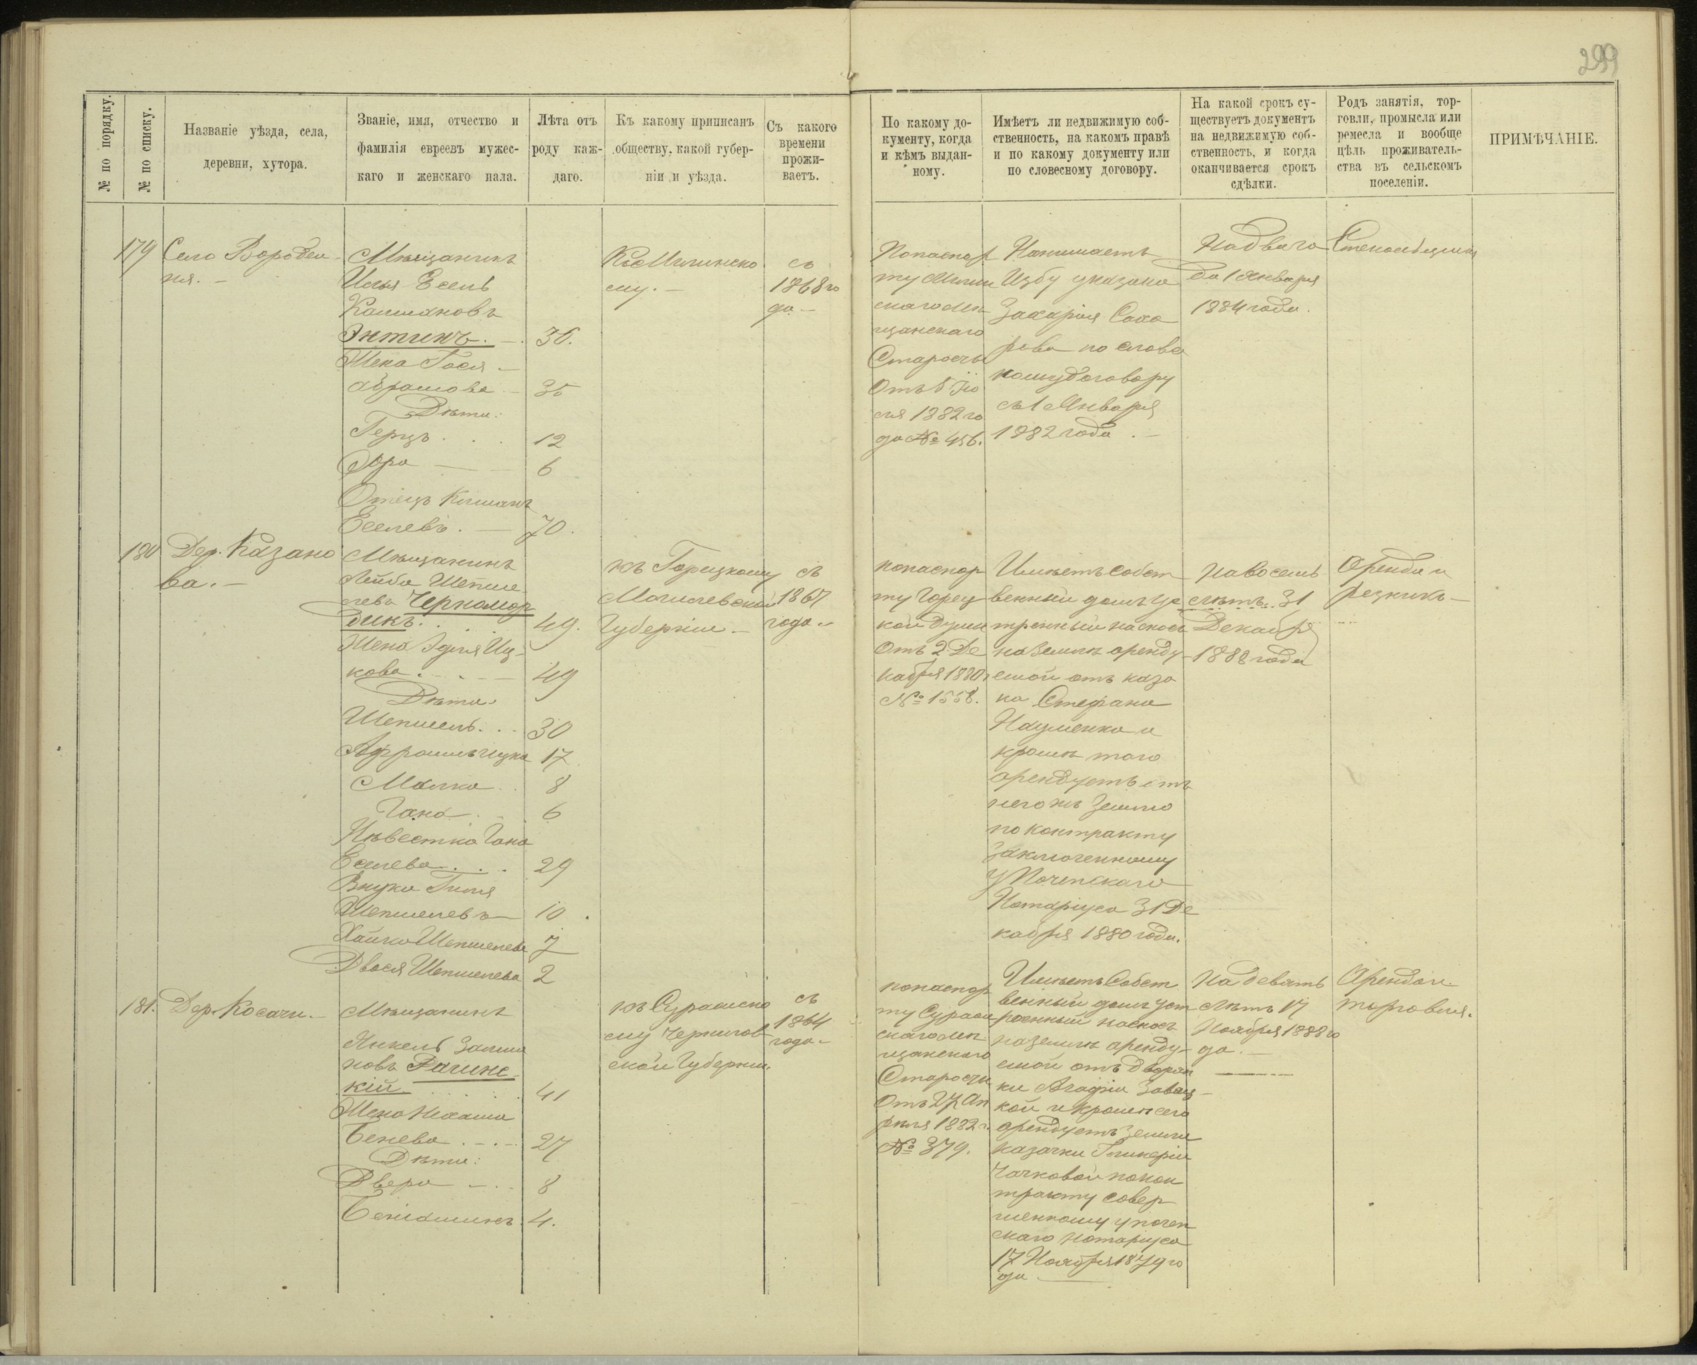 299
№ по порядку.
№ по списку.
Названіе уѣзда, села,
деревни, хутора.
Званіе, имя, отчество и
фамилія евреевъ мужес-
каго и женскаго пала.
Лѣта отъ
роду каж-
даго.
Къ какому приписанъ
обществу, какой губер-
ніи и уѣзда.
Съ какого
времени
прожи-
ваетъ.
По какому до-
кументу, когда
и кѣмъ выдан-
ному.
Имѣетъ ли недвижимую соб-
ственность, на какомъ правѣ
и по какому документу или
по словесному договору.
На какой срокъ су-
ществуетъ документъ
на недвижимую соб-
ственность, и когда
оканчивается срокъ
сдѣлки.
Родъ занятія, тор-
говли, промысла или
ремесла и вообще
цѣль проживатель-
ства въ сельскомъ
поселеніи.
ПРИМѢЧАНІЕ.
179
Село Воробеи
ня. –
Мѣщанинъ
Илья Есель
Калмановъ
Энтинъ. – 36.
Жена Гося –
Абрамова – 35
Дѣти:
Герцъ . . . 12
Дора — 6
Отецъ Калманъ
Еселевъ. — 70.
Къ Мглинско
му. –
съ
1868 го
да –
Попаспор
ту Мглин
скаго мѣ
щанскаго
Старосты
Отъ 6 Ію
ля 1882 го
да № 456.
Нанимаетъ
Избу у казака
Захарія Сахо
рова по слове
ному договору
съ 1 Января
1882 года. –
На два го
да 1 Января
1884 года.
180
Дер. Казано
ва. –
Мѣщанинъ
Лейба Шепше
левъ Черномор
дикъ. . . 49.
Жена Эдля Иц-
кова . . – 49
Дѣти.
Шепшель. . . 30
17
Малка . 8
Гана . . 6
Невѣстка Гана
Еселева . . . 29
Внуки Гиля
Шепшелевъ – 10.
Хайка Шепшелева 7
Двося Шепшелева 2
къ Горецкому
Могилевской
Губерніи –
съ
1867
года –
попаспор
ту Горец
кой Думы
Отъ 2 Де
кабря 1880.
№ 1558.
Имѣетъ собст
венный домъ ус
троенный насвой
на землѣ аренду
емой отъ каза
ка Стефана
Науменка и
кромѣ того
арендуетъ отъ
него жъ землю
по контракту
заключенному
у Почепскаго
Нотаріуса 31 Де
кабря 1880 года.
на восемь
лѣтъ. 31
Декабря
1888 года
Аренда и
резникъ –
181.
Дер. Косачи. –
Мѣщанинъ
Янкель Залма
новъ Рагинс
кій . . . . 41
Жена Нехама
Бенева . – . – 27
Дѣти:
Двера – . . 8
Беніаминъ 4.
къ Суражско
му Чернигов
ской Губерніи.
съ
1864
года –
попаспор
ту Сураж
скаго мѣ
щанскаго
Старосты
Отъ 27 Ап
рѣля 1882 г.
№ 379.
Имѣетъ Собст
венный домъ уст
роенный насвой
на землѣ аренду-
емой отъ Дворян
ки Агафіи Завац
кой и кромѣ сего
арендуетъ землю
казачки Гликеріи
Чачковой покон
тракту совер
шенному у почеп
скаго нотаріуса
17 Ноября 1879 го
да.
На девять
лѣтъ 17
Ноября 1888 го
да. –
Аренда и
торговля.